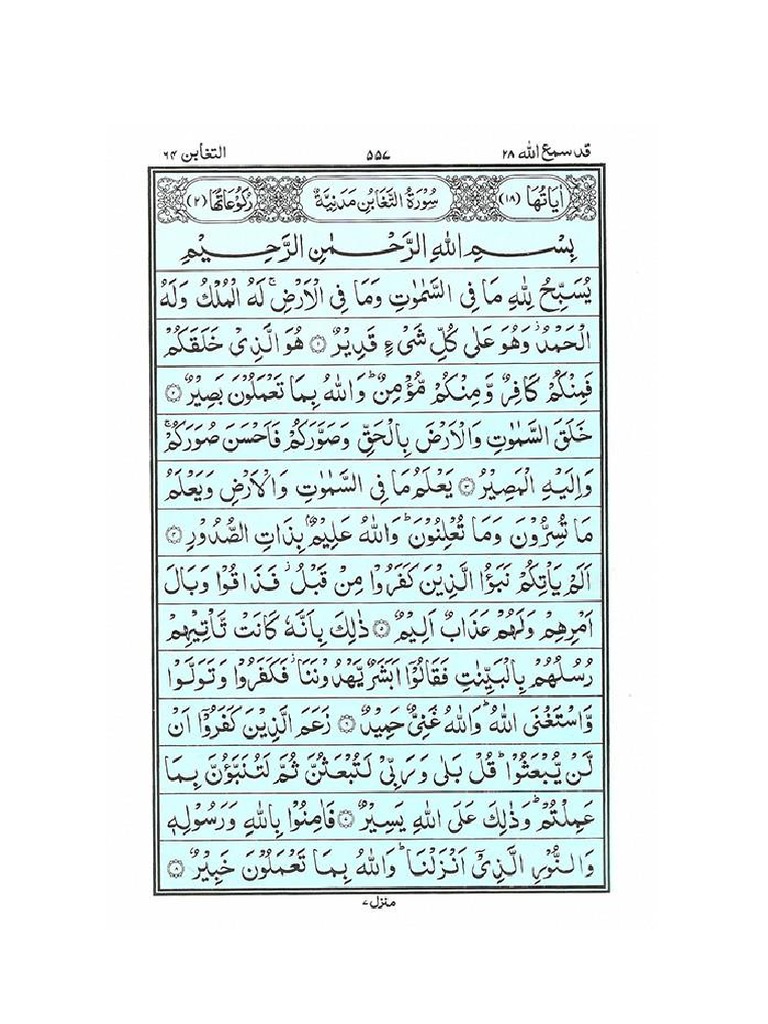 قد سمع الله ٢٨
٥٥٧
التغابن ٦٤
اٰیَاتُهَا (١٨)
سُوْرَةُ التَّغَابُنِ مَدَنِيَّةٌ
رُكُوْعَاتُهَا (٢)
بِسْمِ اللّٰهِ الرَّحْمٰنِ الرَّحِيْمِ
يُسَبِّحُ لِلّٰهِ مَا فِى السَّمٰوٰتِ وَمَا فِى الْاَرْضِ ۚ لَهُ الْمُلْكُ وَلَهُ
الْحَمْدُ ؗ وَهُوَ عَلٰى كُلِّ شَىْءٍ قَدِيْرٌ ۝١ هُوَ الَّذِىْ خَلَقَكُمْ
فَمِنْكُمْ كَافِرٌ وَّمِنْكُمْ مُّؤْمِنٌ ؕ وَاللّٰهُ بِمَا تَعْمَلُوْنَ بَصِيْرٌ ۝٢
خَلَقَ السَّمٰوٰتِ وَالْاَرْضَ بِالْحَقِّ وَصَوَّرَكُمْ فَاَحْسَنَ صُوَرَكُمْ ۚ
وَاِلَيْهِ الْمَصِيْرُ ۝٣ يَعْلَمُ مَا فِى السَّمٰوٰتِ وَالْاَرْضِ وَيَعْلَمُ
مَا تُسِرُّوْنَ وَمَا تُعْلِنُوْنَ ؕ وَاللّٰهُ عَلِيْمٌۢ بِذَاتِ الصُّدُوْرِ ۝٤
اَلَمْ يَاْتِكُمْ نَبَؤُا الَّذِيْنَ كَفَرُوْا مِنْ قَبْلُ ؗ فَذَاقُوْا وَبَالَ
اَمْرِهِمْ وَلَهُمْ عَذَابٌ اَلِيْمٌ ۝٥ ذٰلِكَ بِاَنَّهٗ كَانَتْ تَّاْتِيْهِمْ
رُسُلُهُمْ بِالْبَيِّنٰتِ فَقَالُوْۤا اَبَشَرٌ يَّهْدُوْنَنَا ؗ فَكَفَرُوْا وَتَوَلَّوْا
وَّاسْتَغْنَى اللّٰهُ ؕ وَاللّٰهُ غَنِىٌّ حَمِيْدٌ ۝٦ زَعَمَ الَّذِيْنَ كَفَرُوْۤا اَنْ
لَّنْ يُّبْعَثُوْا ؕ قُلْ بَلٰى وَرَبِّىْ لَتُبْعَثُنَّ ثُمَّ لَتُنَبَّؤُنَّ بِمَا
عَمِلْتُمْ ؕ وَذٰلِكَ عَلَى اللّٰهِ يَسِيْرٌ ۝٧ فَاٰمِنُوْا بِاللّٰهِ وَرَسُوْلِهٖ
وَالنُّوْرِ الَّذِىْۤ اَنْزَلْنَا ؕ وَاللّٰهُ بِمَا تَعْمَلُوْنَ خَبِيْرٌ ۝٨
منزل ٧